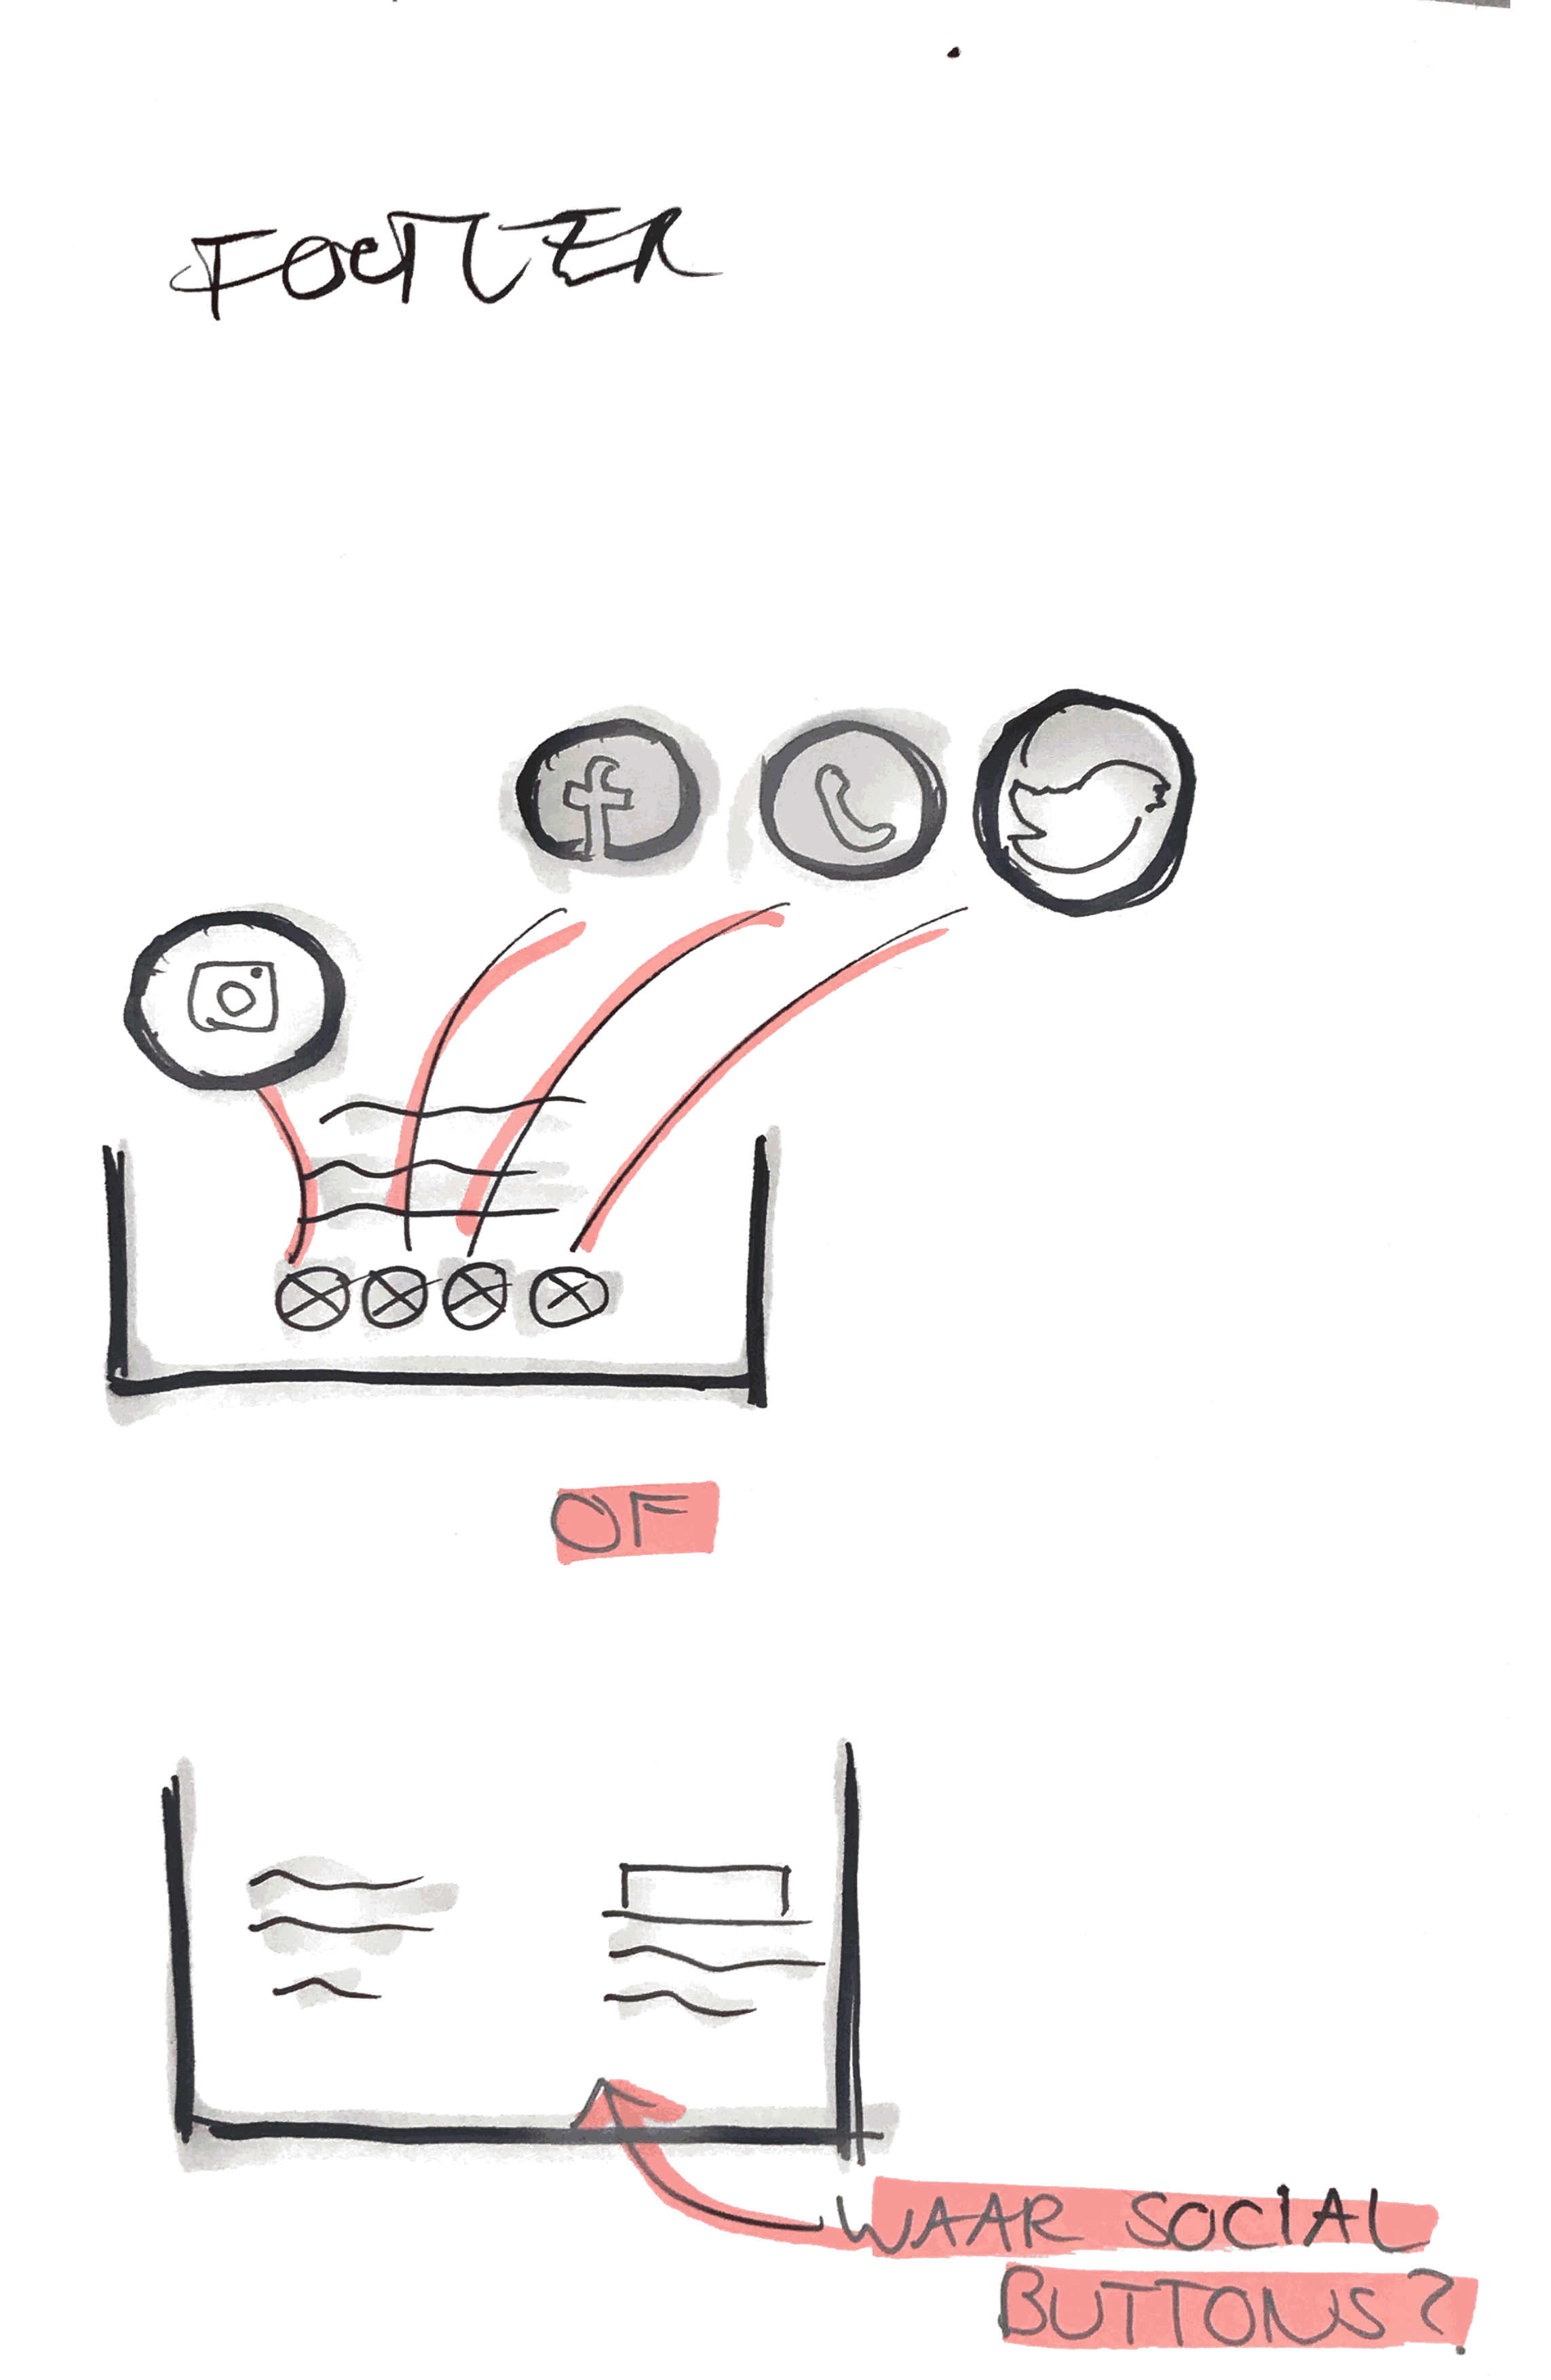 FOOTER
f
OF
WAAR SOCIAL
BUTTONS?